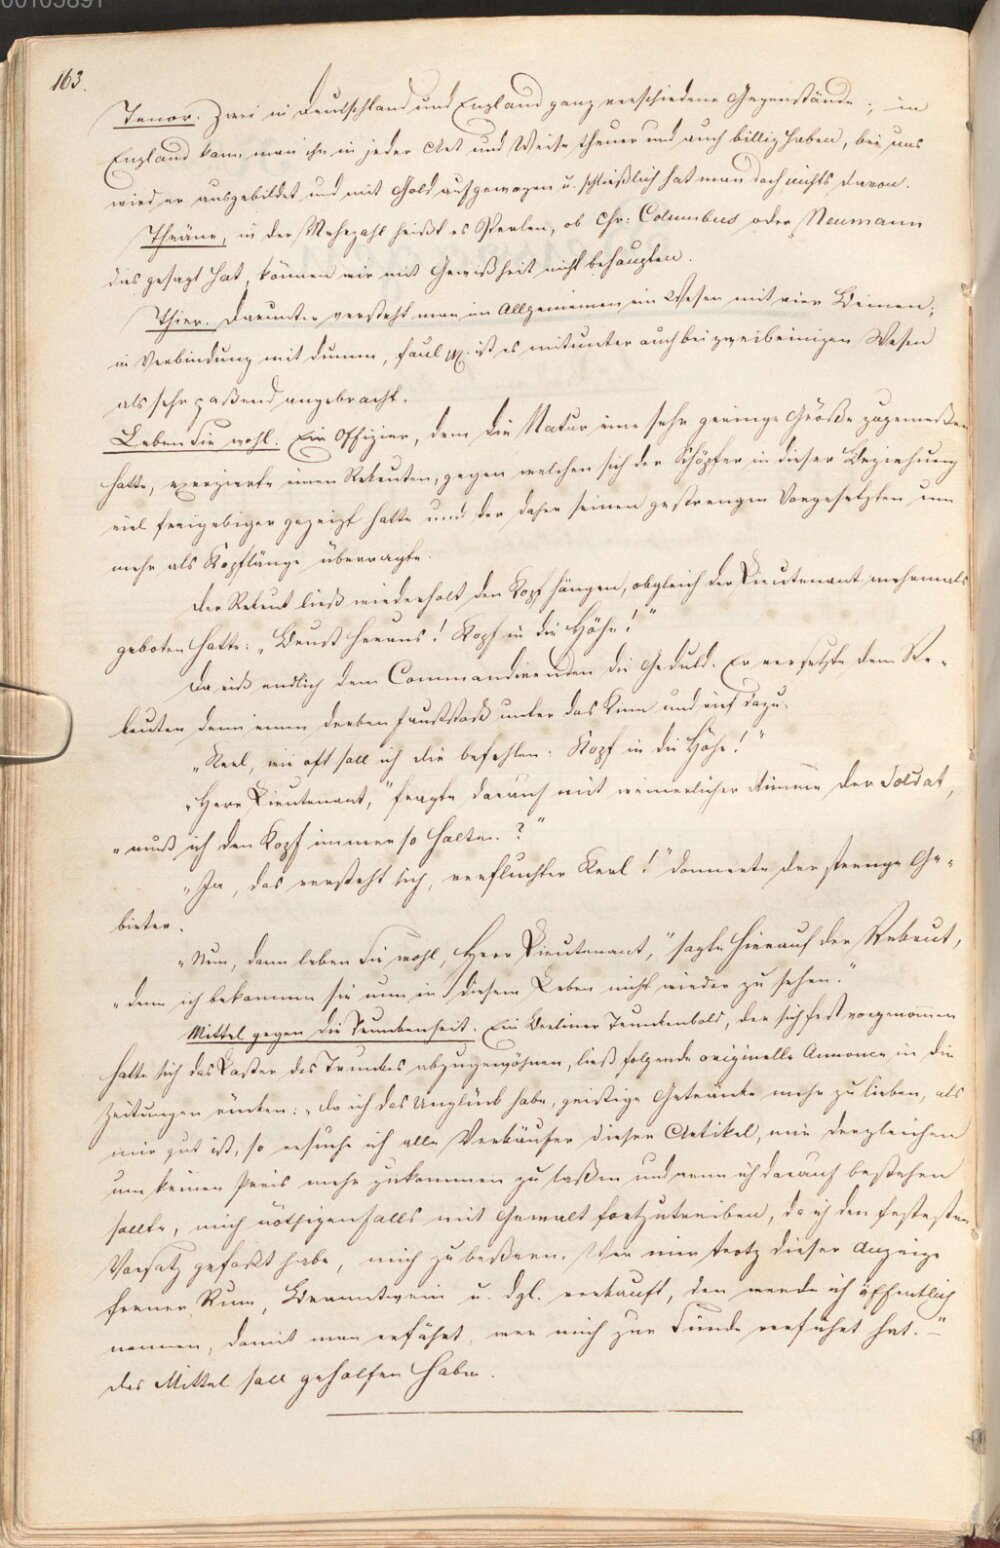 00105891
163.
Tenor. Zwei in Deutschland und England ganz verschiedene Gegenstände; in
England kann man ihn in jeder Art und Weise theuer und auch billig haben, bei uns
wird er ausgebildet und mit Gold aufgewogen u. schließlich hat man doch nichts davon.
Thräne, in der Mehrzahl heißt es Perlen, ob Chr: Columbus oder Neumann
das gesagt hat, können wir mit Gewißheit nicht behaupten.
Thier. Darunter versteht man im Allgemeinen ein Wesen mit vier Beinen;
in Verbindung mit dumm, faul ist es mitunter auch bei zweibeinigen Wesen
als sehr paßend angebracht.
Leben Sie wohl. Ein Offizier, dem die Natur eine sehr geringe Größe zugemeßen
hatte, exerzierte einen Rekruten, gegen welchen sich der Schöpfer in dieser Beziehung
viel freigebiger gezeigt hatte und der daher seinen gestrengen Vorgesetzten um
mehr als Kopflänge überragte.
Der Rekrut ließ wiederholt den Kopf hängen, obgleich der Lieutenant mehrmals
geboten hatte: „Brust heraus! Kopf in die Höhe!"
Da riß endlich dem Commandirenden die Geduld. Er versetzte dem Re-
kruten denn einen derben Fauststoß unter das Kinn und rief dazu:
„Kerl, wie oft soll ich dir befehlen: Kopf in die Höhe!"
„Herr Lieutenant," fragte darauf mit weinerlicher Stimme der Soldat,
„muß ich den Kopf immer so halten?"
„Ja, das versteht sich, verfluchter Kerl!" donnerte der strenge Ge-
bieter.
„Nun, dann leben Sie wohl, Herr Lieutenant," sagte hierauf der Rekrut,
„denn ich bekomme sie nun in diesem Leben nicht wieder zu sehen."
Mittel gegen die Trunkenheit. Ein Berliner Trunkenbold, der sich fest vorgenommen
hatte sich das Laster des Trunkes abzugewöhnen, ließ folgende originelle Annonce in die
Zeitungen rücken: „Da ich das Unglück habe, geistige Getränke mehr zu lieben, als
mir gut ist, so ersuche ich alle Verkäufer dieser Artikel, mir dergleichen
um keinen Preis mehr zukommen zu laßen und wenn ich darauf bestehen
sollte, mich nöthigenfalls mit Gewalt fortzutreiben, da ich den festesten
Vorsatz gefaßt habe, mich zu beßern. Wer mir trotz dieser Anzeige
ferner Rum, Branntwein u. dgl. verkauft, den werde ich öffentlich
nennen, damit man erfährt, wer mich zur Sünde verführt hat." –
Das Mittel soll geholfen haben.